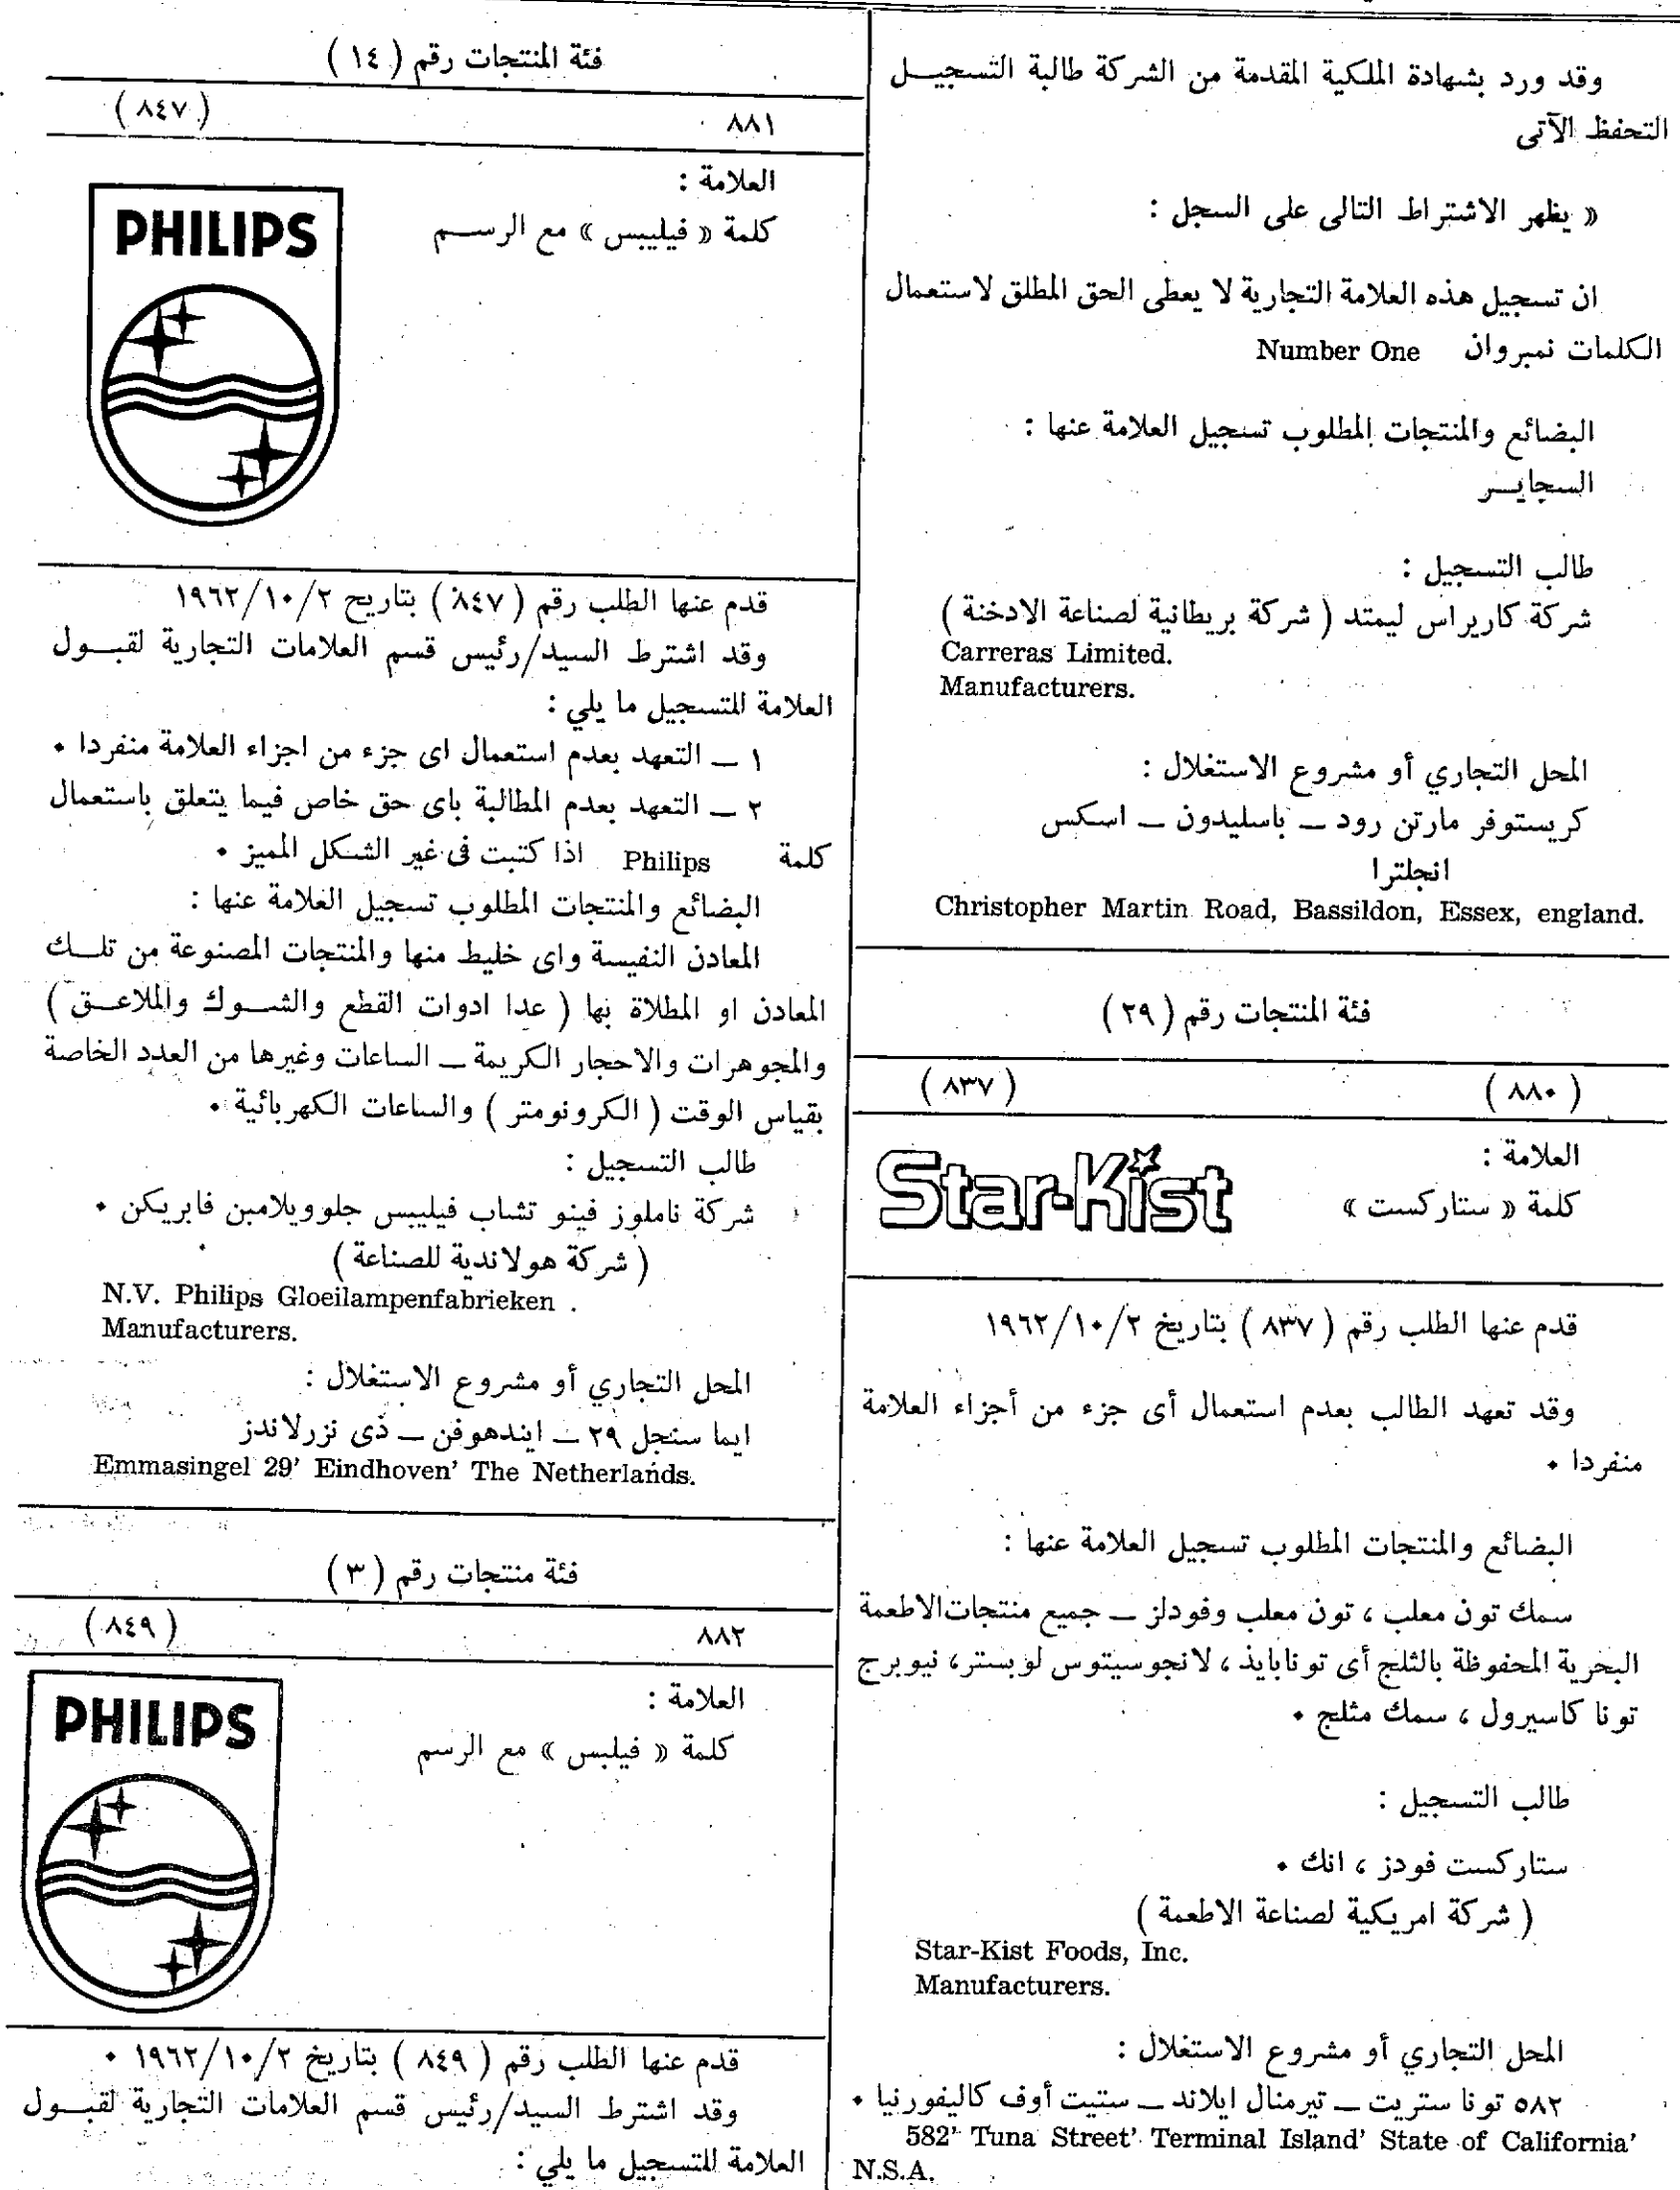 وقد ورد بشهادة الملكية المقدمة من الشركة طالبة التسجيل
التحفظ الآتى
« يظهر الاشتراط التالى على السجل :
ان تسجيل هذه العلامة التجارية لا يعطى الحق المطلق لاستعمال
الكلمات نمبروان Number One
البضائع والمنتجات المطلوب تسجيل العلامة عنها :
السجاير
طالب التسجيل :
شركة كاريراس ليمتد ( شركة بريطانية لصناعة الادخنة )
Carreras Limited.
Manufacturers.
المحل التجاري أو مشروع الاستغلال :
كريستوفر مارتن رود ــ باسليدون ــ اسكس
انجلترا
Christopher Martin Road, Bassildon, Essex, england.
فئة المنتجات رقم ( ٢٩ )
( ٨٨٠ ) ( ٨٣٧ )
العلامة :
كلمة « ستاركست »
Star-Kist
قدم عنها الطلب رقم ( ٨٣٧ ) بتاريخ ١٩٦٢/١٠/٢
وقد تعهد الطالب بعدم استعمال أى جزء من أجزاء العلامة
منفردا ٠
البضائع والمنتجات المطلوب تسجيل العلامة عنها :
سمك تون معلب ، تون معلب وفودلز ــ جميع منتجات الاطعمة
البحرية المحفوظة بالثلج أى تونابايذ ، لانجوسيتوس لوبستر، نيوبرج
تونا كاسيرول ، سمك مثلج ٠
طالب التسجيل :
ستاركست فودز ، انك ٠
( شركة امريكية لصناعة الاطعمة )
Star-Kist Foods, Inc.
Manufacturers.
المحل التجاري أو مشروع الاستغلال :
٥٨٢ تونا ستريت ــ تيرمنال ايلاند ــ ستيت أوف كاليفورنيا ٠
582' Tuna Street' Terminal Island' State of California'
N.S.A.
فئة المنتجات رقم ( ١٤ )
٨٨١ ( ٨٤٧ )
العلامة :
كلمة « فيليبس » مع الرسم
PHILIPS
قدم عنها الطلب رقم ( ٨٤٧ ) بتاريخ ١٩٦٢/١٠/٢
وقد اشترط السيد/رئيس قسم العلامات التجارية لقبول
العلامة للتسجيل ما يلي :
١ ــ التعهد بعدم استعمال اى جزء من اجزاء العلامة منفردا ٠
٢ ــ التعهد بعدم المطالبة باى حق خاص فيما يتعلق باستعمال
كلمة Philips اذا كتبت فى غير الشكل المميز ٠
البضائع والمنتجات المطلوب تسجيل العلامة عنها :
المعادن النفيسة واى خليط منها والمنتجات المصنوعة من تلك
المعادن او المطلاة بها ( عدا ادوات القطع والشوك والملاعق )
والمجوهرات والاحجار الكريمة ــ الساعات وغيرها من العدد الخاصة
بقياس الوقت ( الكرونومتر ) والساعات الكهربائية ٠
طالب التسجيل :
شركة ناملوز فينو تشاب فيليبس جلوويلامبن فابريكن ٠
( شركة هولاندية للصناعة )
N.V. Philips Gloeilampenfabrieken .
Manufacturers.
المحل التجاري أو مشروع الاستغلال :
ايما سنجل ٢٩ ــ ايندهوفن ــ ذى نزرلاندز
Emmasingel 29' Eindhoven' The Netherlands.
فئة منتجات رقم ( ٣ )
٨٨٢ ( ٨٤٩ )
العلامة :
كلمة « فيلبس » مع الرسم
PHILIPS
قدم عنها الطلب رقم ( ٨٤٩ ) بتاريخ ١٩٦٢/١٠/٢ ٠
وقد اشترط السيد/رئيس قسم العلامات التجارية لقبول
العلامة للتسجيل ما يلي :